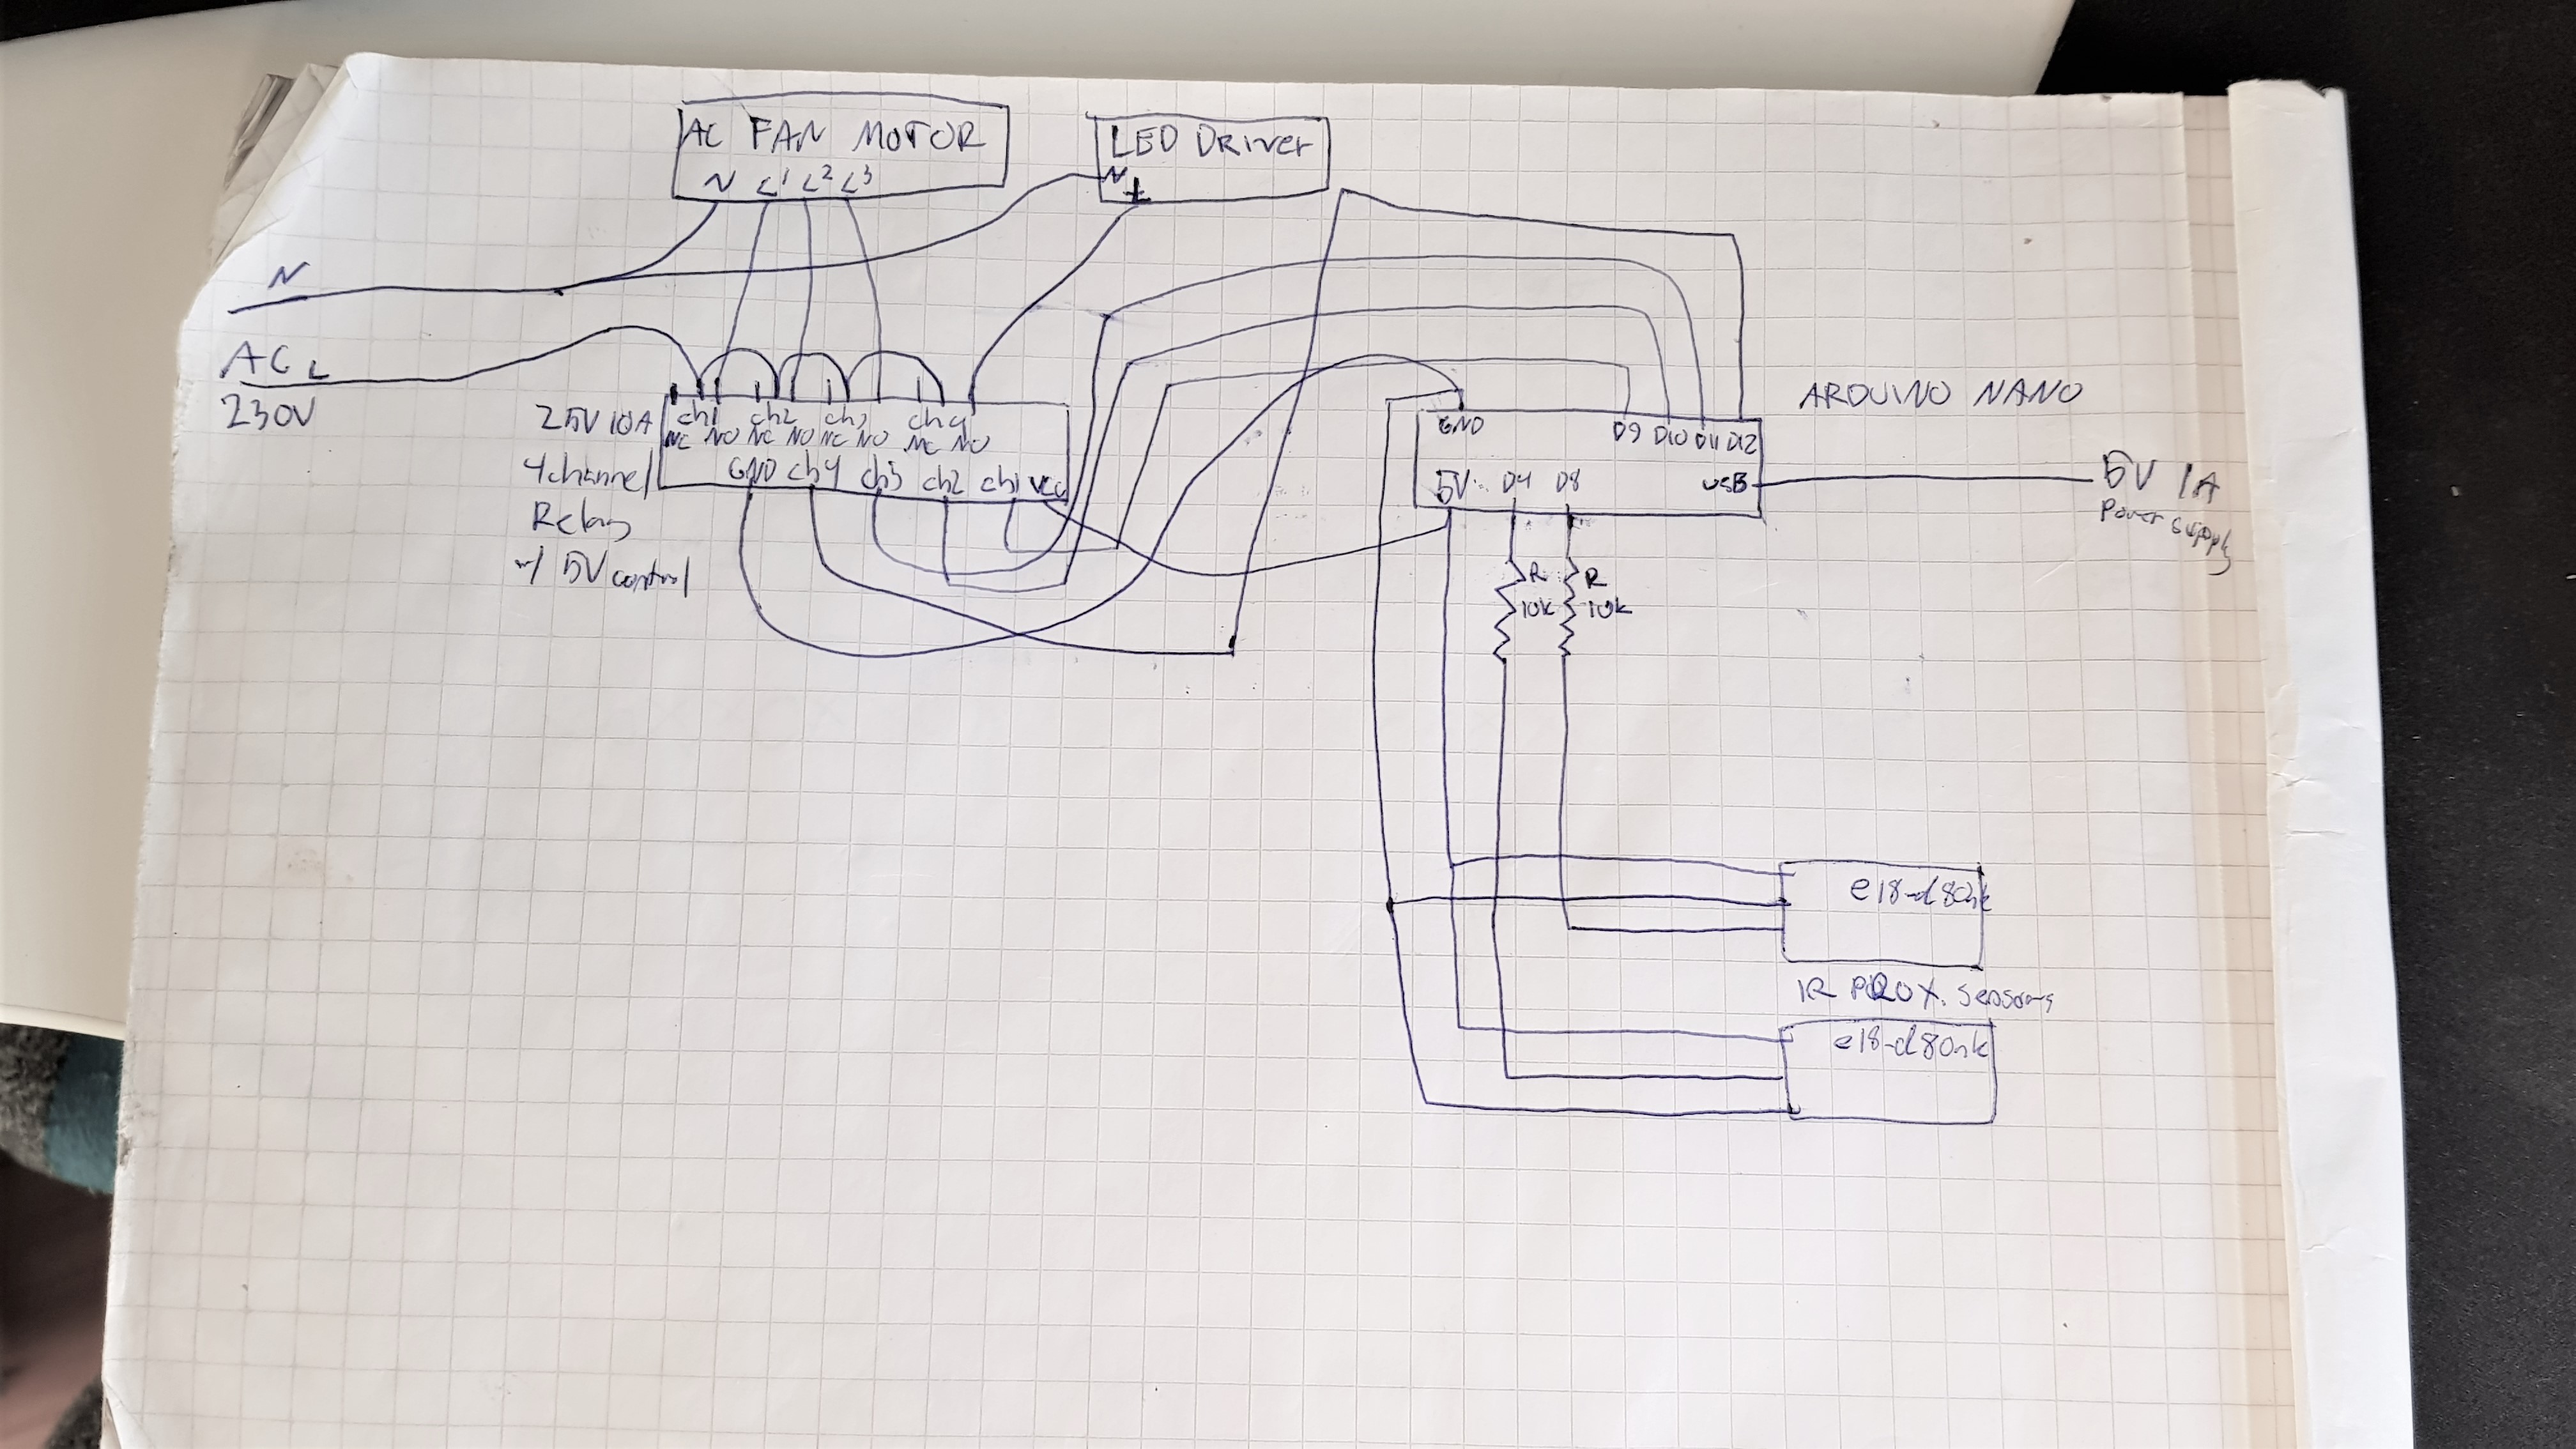 AC FAN MOTOR
N L1 L2 L3
LED Driver
N
L
N
AC L
230V
25V 10A
4channel
Relay
w/ 5V control
ch1 ch2 ch3 ch4
NC NO NC NO NC NO NC NO
GND ch4 ch3 ch2 ch1 VCC
ARDUINO NANO
GND D9 D10 D11 D12
5V D4 D8 USB
5V 1A
Power supply
R
10k
R
10k
e18-d80nk
IR PROX. sensors
e18-d80nk